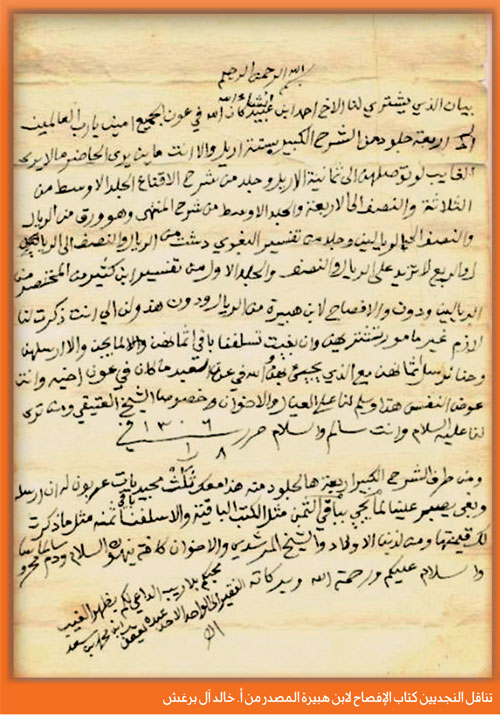 بسم الله الرحمن الرحيم
بيان الذي يشتري لنا الاخ احمد ابن عبيد كان الله في عون الجميع امين يا رب العالمين
اربعة جلود من الشرح الكبير بستة اريل والا انت ما ين يرى الحاضر ما لا يرى
الغايب لو توصلهن الى ثمانية الاريل وجلد من شرح الاقناع الجلد الاوسط من
الثلاثة والنصف الى الاربعة والجلد الاوسط من شرح المنتهى وهو ورق من الريال
والنصف الى الريالين وجلد من تفسير البغوي دشت من الريال والنصف الى الريال
او الربع لا تزيد على الريال والنصف والجلد الاول من تفسير ابن كثير من المختصر من
الريالين ودون والافصاح لابن هبيرة من الريال ودون هذولن الي انت ذكرت لنا
الازم غير مامور تشتريهن وان بغيت تسلفنا باقي اثمانهن والا لما يجن والا ارسلهن
وحنا نرسل اثمانهن مع الذي يجي بهن والله في عون العبد ما كان في عون اخيه وانت
عوض النفس هذا وسلم لنا على العيال والاخوان وخصوصا الشيخ العتيقي ومن ترى
لنا عليه السلام وانت سالم والسلام حرر في ١٣٠٦
٨ ١
ومن طرف الشرح الكبير اربعة هالجلود منه هذا معك ثلث مجيديات عربون له ان ارسله
وبغى يصبر علينا لما يجي بباقي الثمن مثل الكتب الباقية والا سلفنا ثمنه مثل ما ذكرت
لك قيمتها ومن لدينا الاولاد والشيخ المرشدي والاخوان كافة ينهون السلام ودم محروس سالما
والسلام عليكم ورحمة الله وبركاته
محبكم بلا ريب الداعي لكم بظهر الغيب
الفقير الى الواحد الاحد عبده
ابن محمد بن سعد
تناقل النجديين كتاب الإفصاح لابن هبيرة المصدر من أ. خالد آل برغش